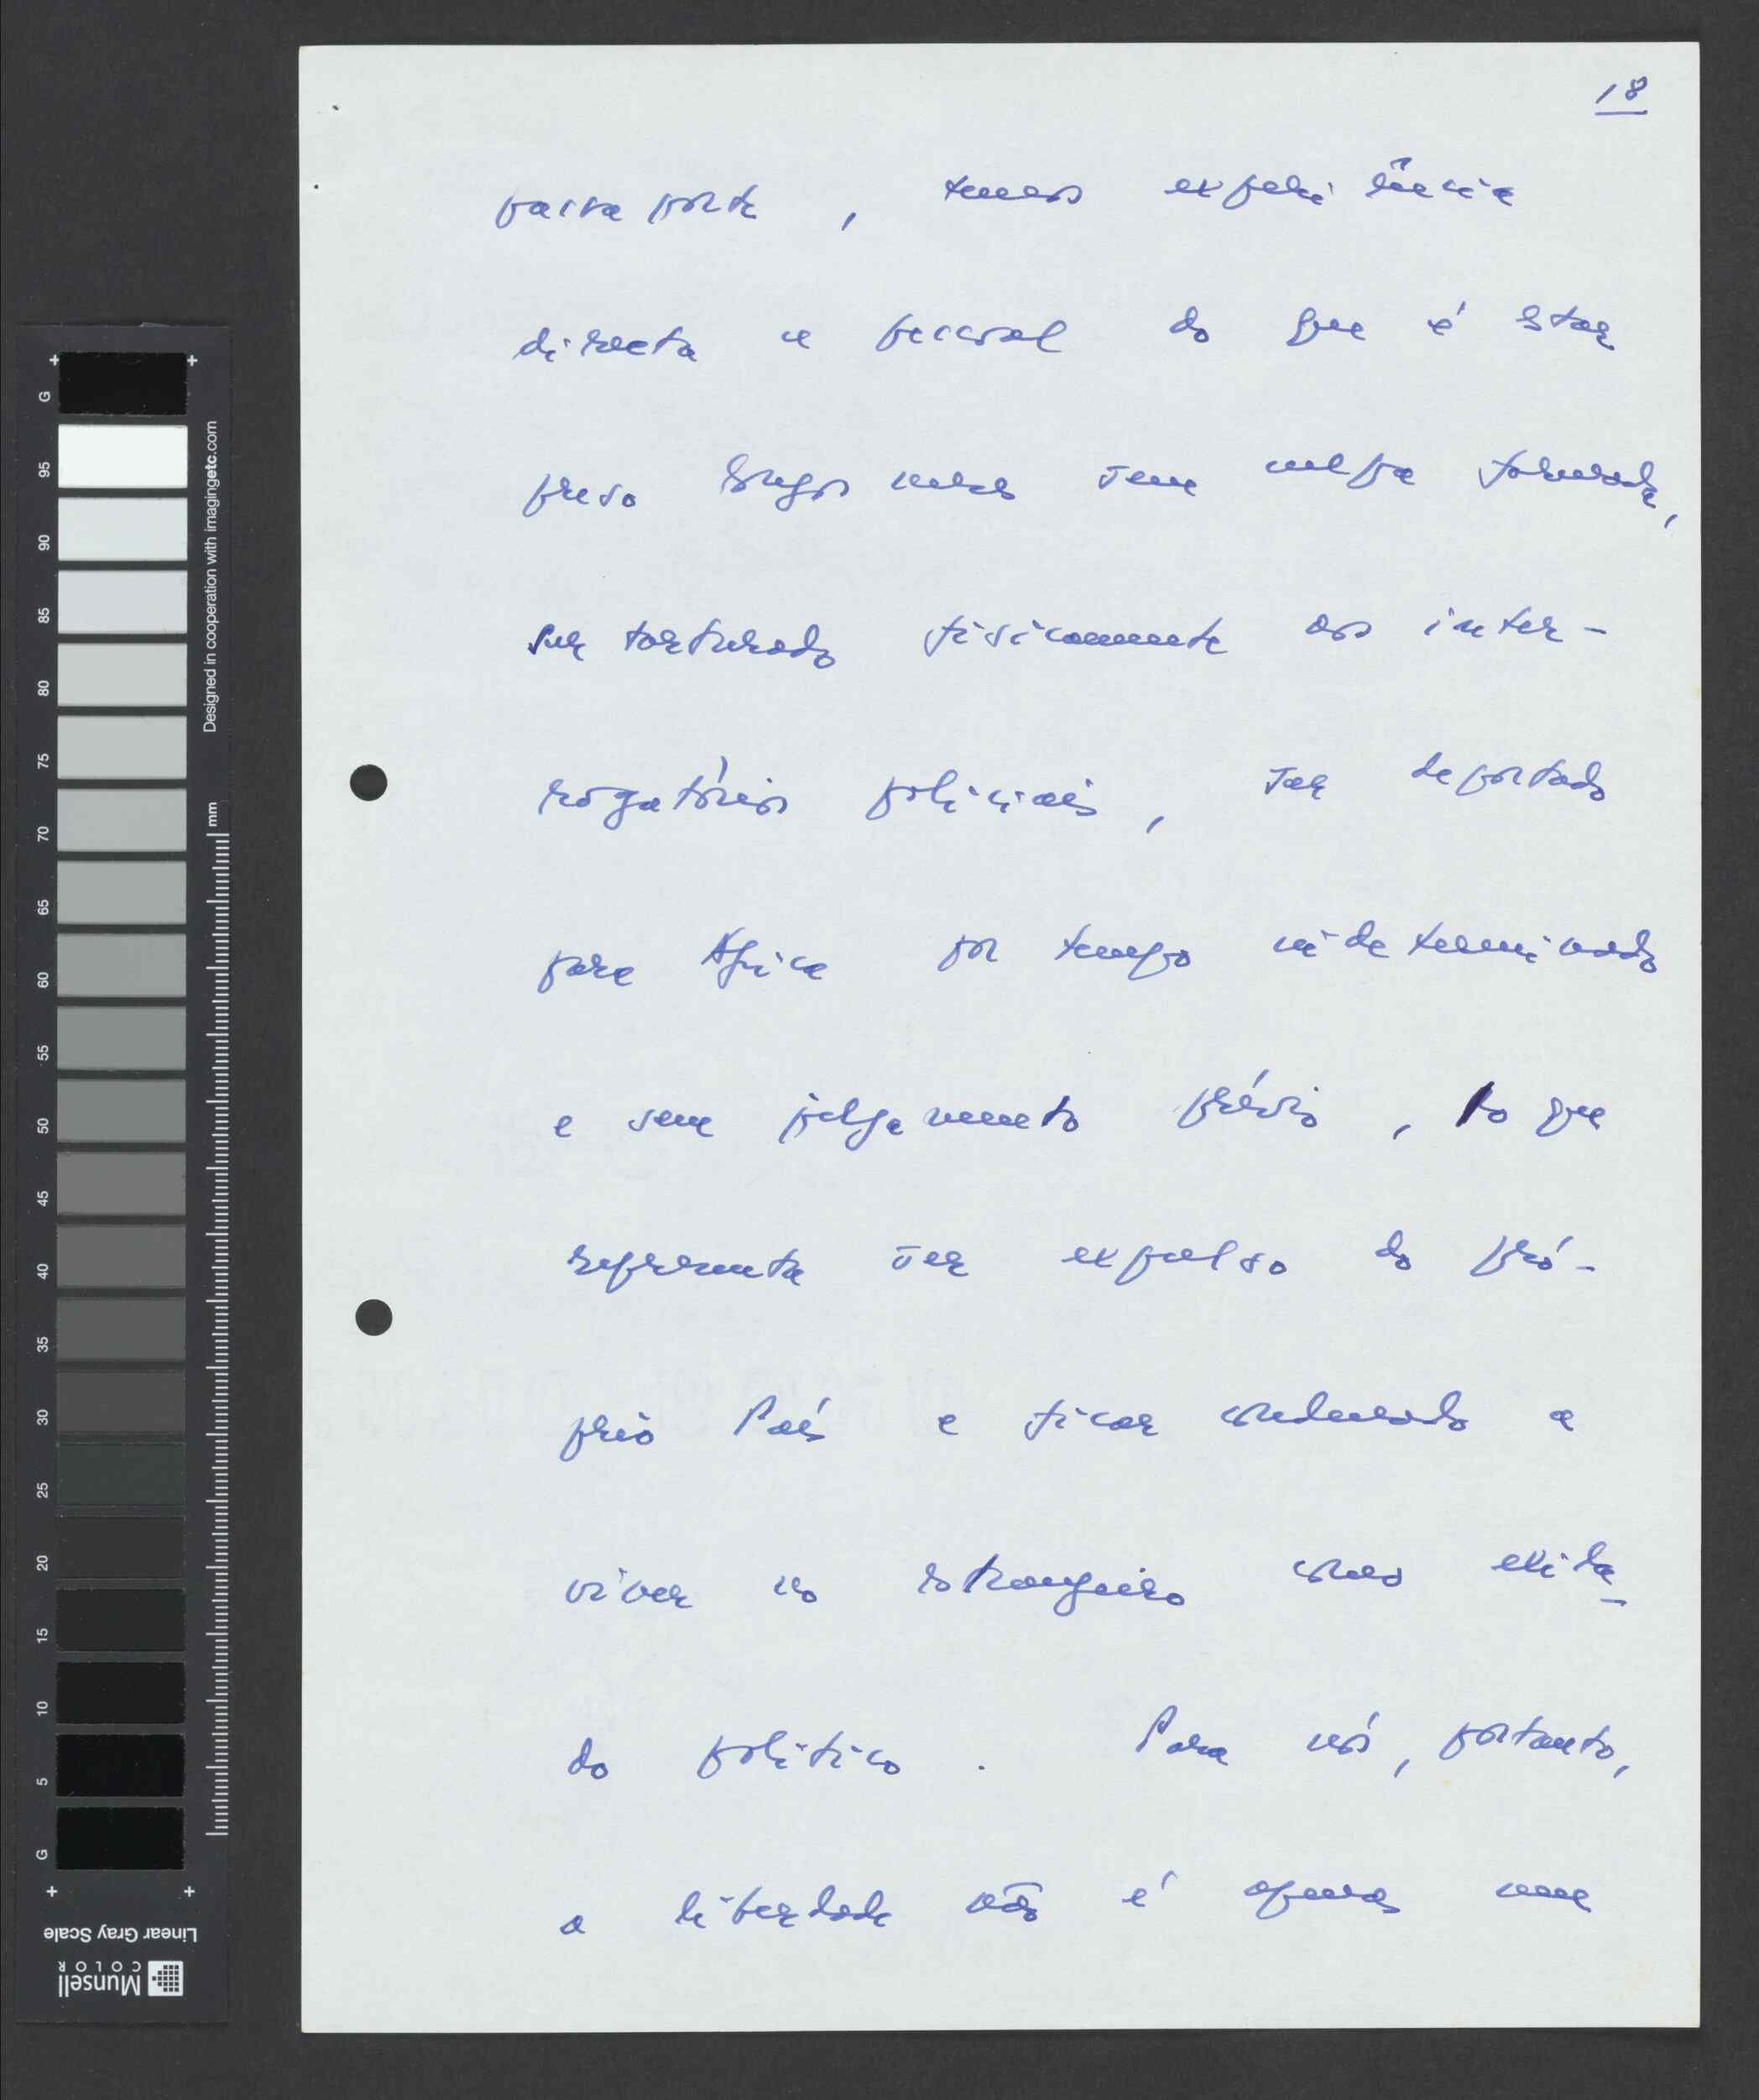 18
passaporte, temos experiência
directa e pessoal do que é estar
preso longos meses sem culpa formada,
ser torturado fisicamente nos inter-
rogatórios policiais, ser deportado
para África por tempo indeterminado
e sem julgamento prévio, do que
representa ser expulso do pró-
prio País e ficar condenado a
viver no estrangeiro como exila-
do político. Para nós, portanto,
a liberdade não é apenas uma
G
95
90
85
80
75
70
65
60
55
50
45
40
35
30
25
20
15
10
5
G
Designed in cooperation with imagingetc.com
mm
Linear Gray Scale
Munsell
COLOR